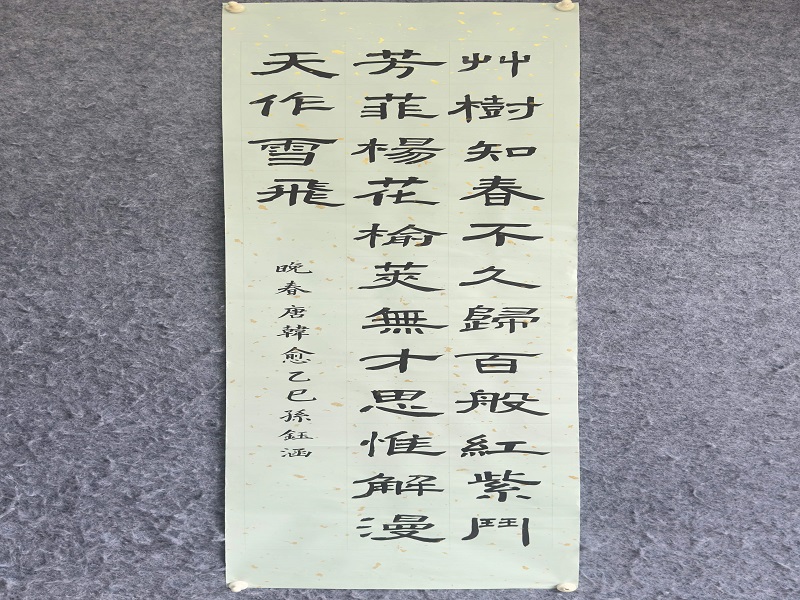 艸樹知春不久歸百般紅紫鬥
芳菲楊花榆莢無才思惟解漫
天作雪飛
晚春唐韓愈乙巳孫鈺涵